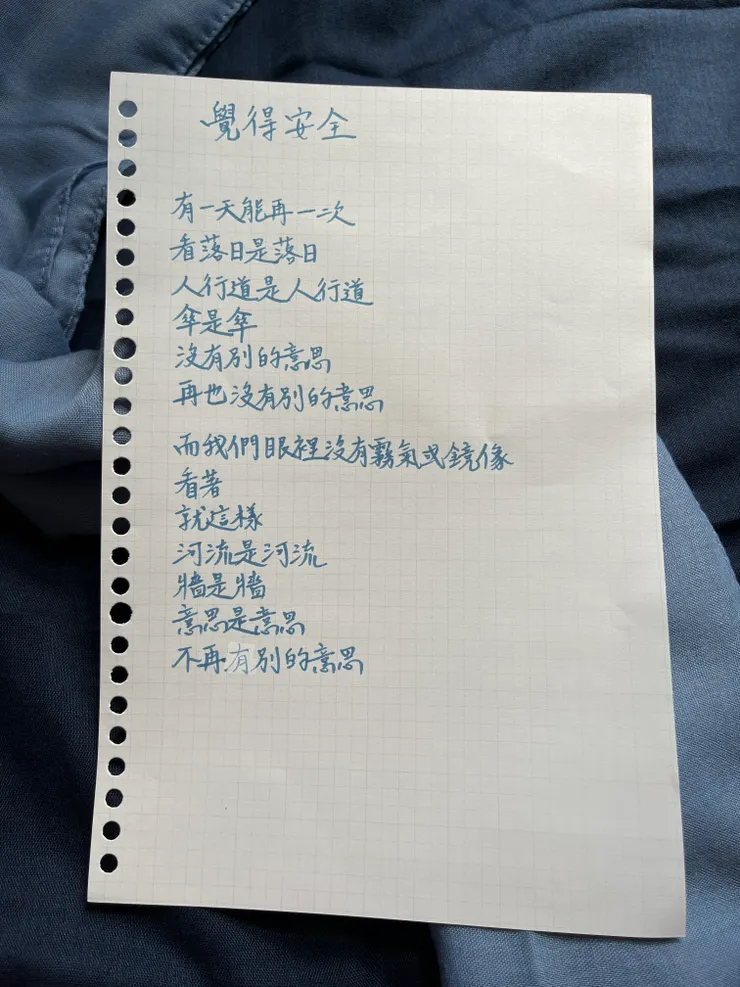 覺得安全
有一天能再一次
看落日是落日
人行道是人行道
傘是傘
沒有別的意思
再也沒有別的意思
而我們眼裡沒有霧氣或鏡像
看著
就這樣
河流是河流
牆是牆
意思是意思
不再有別的意思